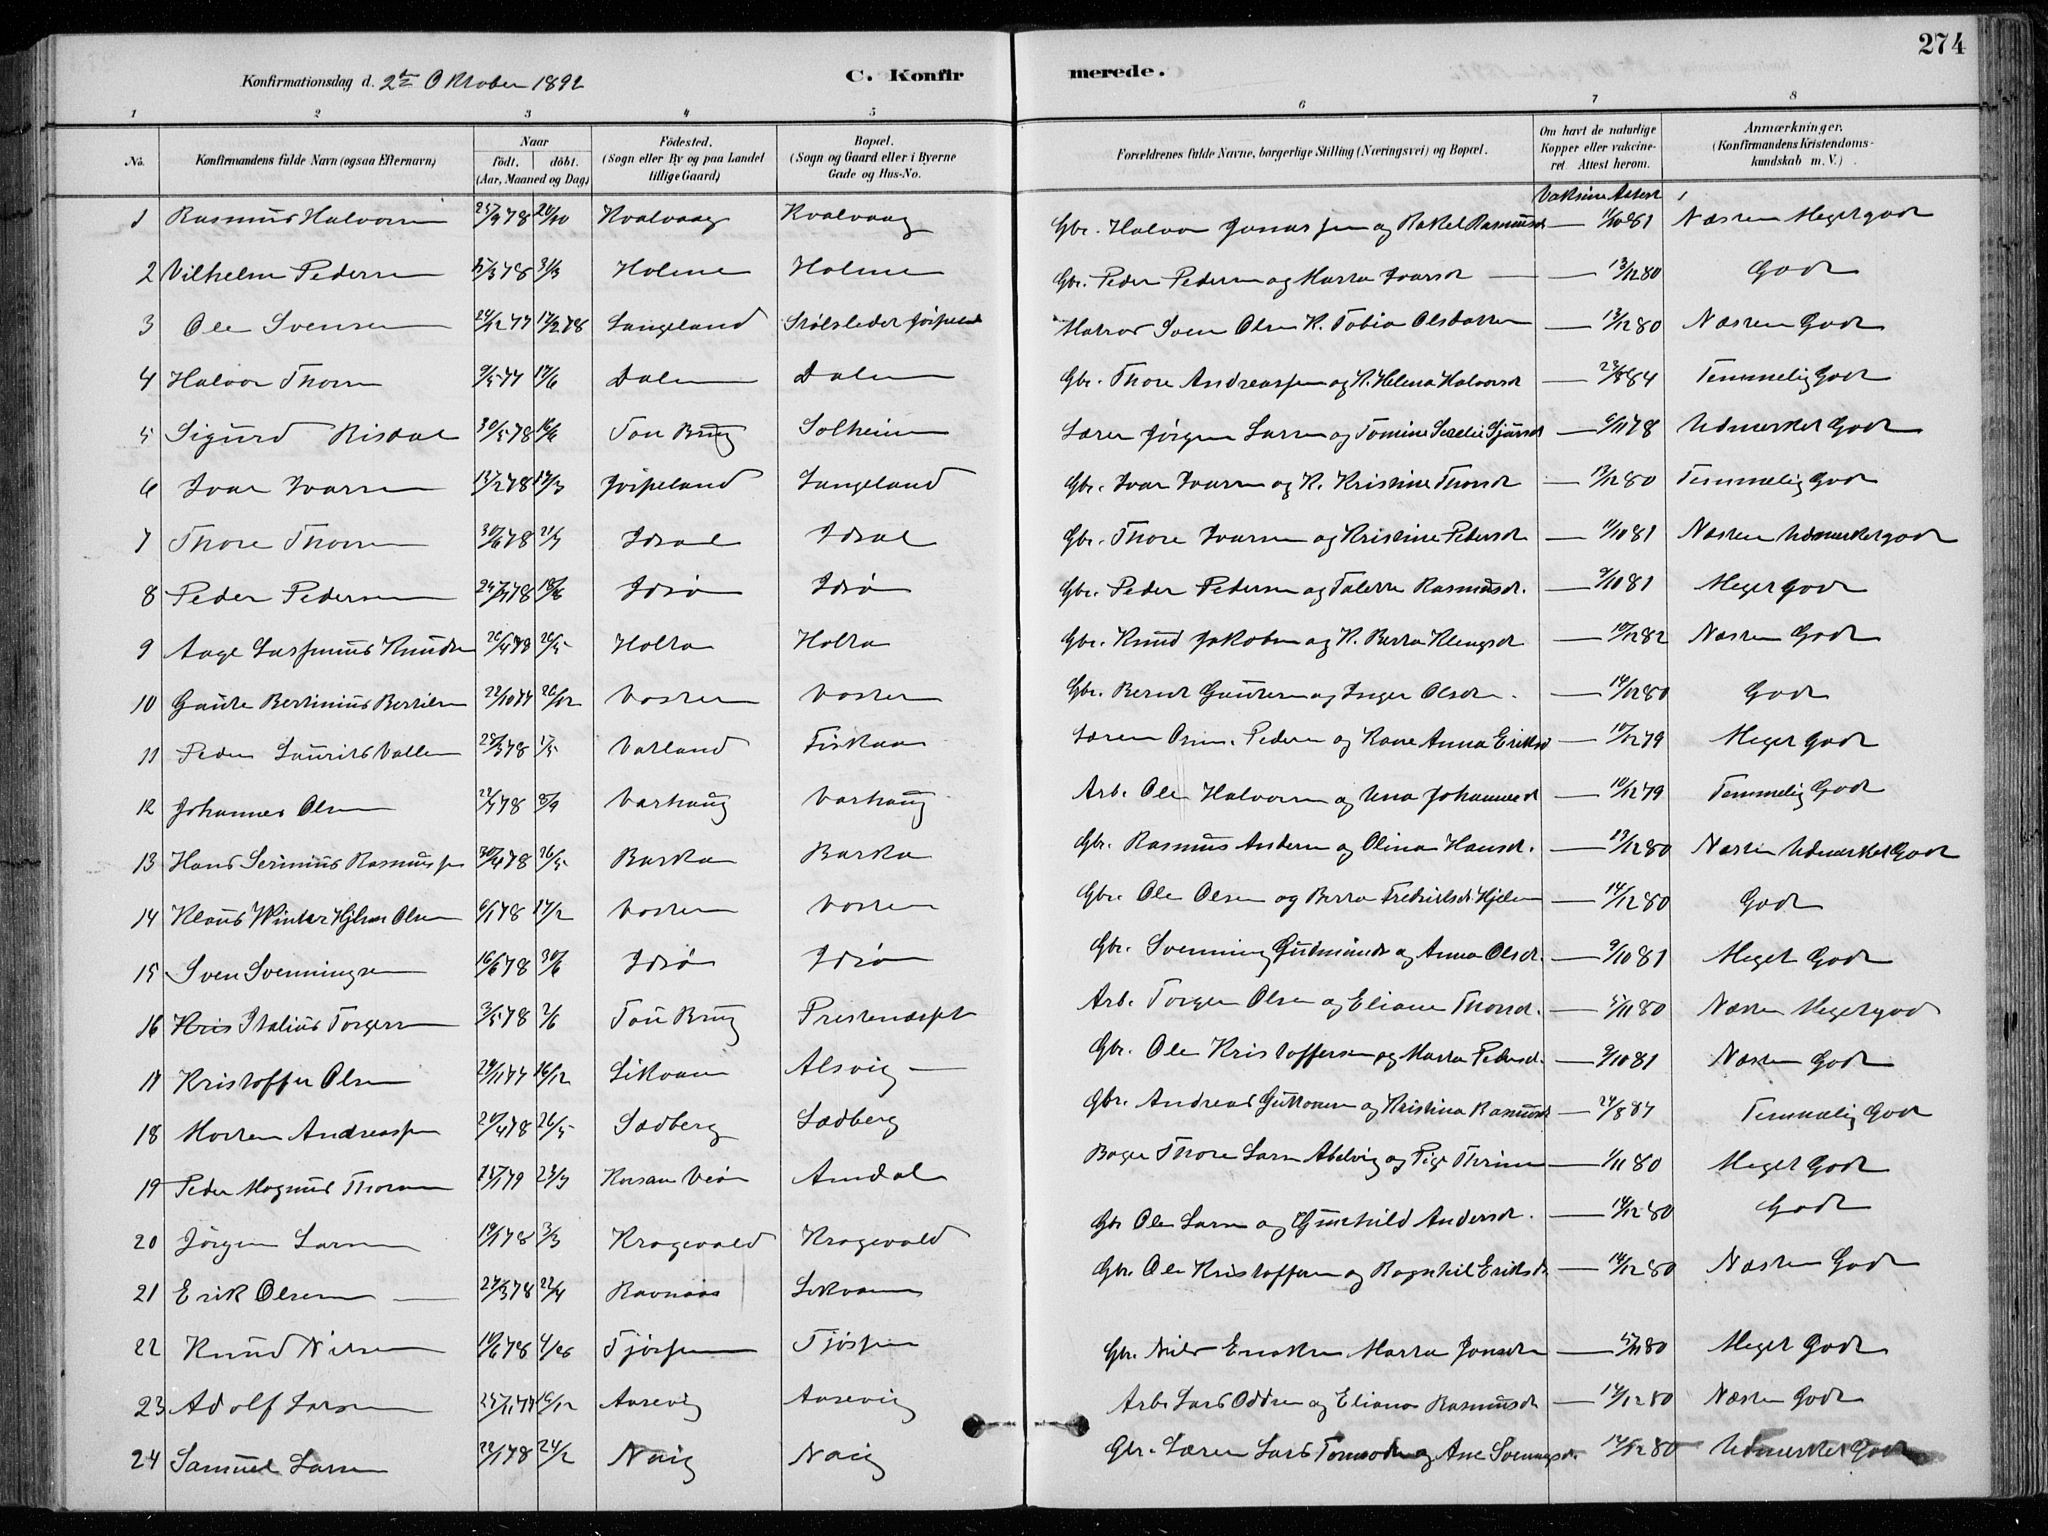 274
Konfirmationsdag d. 2den Oktober 1892 C. Konfirmerede.
1 2 3 4 5 6 7 8
No. Konfirmandens fulde Navn (ogsaa Efternavn) Naar födt. döbt. (Aar, Maaned og Dag) Födested. (Sogn eller By og paa Landet tillige Gaard) Bopæl. (Sogn og Gaard eller i Byerne Gade og Hus-No. Forældrenes fulde Navne, borgerlige Stilling (Næringsvei) og Bopæl. Om havt de naturlige Kopper eller vakcineret. Attest herom. Anmærkninger. (Konfirmandens Kristendomskundskab m. V.)
Vaksine Attest
1 Rasmus Halvorsen 25/9 78 20/10 Kvalvaag Kvalvaag Gbr. Halvor Jonassen og Rakel Rasmusd — 11/10 81 Næsten Meget godt
2 Vilhelm Pedersen 31/3 Holme Holme Gbr. Peder Pedersen og Marta Ivarsd — 13/12 80 Godt
3 Ole Svensen 17/2 78 Langeland Stölsleder Jöspeland Matros Sven Olsen K. Tobia Olsdatter — 13/12 80 Næsten Godt
4 Halvor Thorsen 9/5 77 17/6 Dalen Dalen Gbr. Thore Andreassen og K. Helena Halvorsd — 23/8 84 Temmelig Godt
5 Sigurd Risdal 30/5 78 16/6 Tou Brug Solheim Lærer Jörgen Larsen og Tomine Serelie Sjursd — 6/11 78 Udmerket Godt
6 Ivar Ivarsen 13/2 78 17/3 Jöspeland Langeland Gbr. Ivar Ivarsen og K. Kristine Thorsd — 13/12 80 Temmelig Godt
7 Thore Thorsen 30/6 78 21/7 Idsal Idsal Gbr. Thore Ivarsen og Kristine Pedersd — 11/10 81 Næsten Udmerket godt
8 Peder Pedersen 18/6 Idsö Idsö Gbr. Peder Pedersen og Talette Rasmusd. — 9/10 81 Meget godt
9 Aage Knudsen 26/4 78 26/5 Holta Holta Gbr. Knud Jakobsen og K. Berta Klengsd — 10/12 82 Næsten Godt
10 Gaute Bertinius Bertilsen 22/10 77 26/12 Vosten Vosten Gbr. Berent Gautesen og Inger Olsdt. — 14/12 80 Godt
11 Peder Laurits Vatland 28/3 78 17/5 Vatland Fiskaa Peder og Kone Anna Eriksd — 10/12 79 Meget godt
12 Johannes Olsen 22/7 78 8/9 Varhaug Varhaug Arb. Ole Halvorsen og Una Johannesd — 10/12 79 Temmelig Godt
13 Hans Serinius Rasmussen 30/4 78 26/5 Barka Barka Gbr. Rasmus Andersen og Olina Hansd. — 13/12 80 Næsten Udmerket Godt
14 Klaus Winter Hjelm Olsen 6/1 78 17/2 Vosten Vosten Gbr. Ole Olsen og Berta Fredriksd Hjelm — 14/12 80 Godt
15 Sven Svenningsen 16/6 78 30/6 Idsö Idsö Gbr. Svenning Gudmunds og Anna Olsd. — 9/10 81 Meget Godt
16 Kris Italius Torgersen 3/5 78 2/6 Tou Brug Prestenæset Arb. Torger Olsen og Eliane Thorsd. — 5/11 80 Næsten Meget god
17 Kristoffer Olsen 24/11 77 16/12 Likvam Alsvig — Gbr. Ole Kristoffersen og Marta Pedersd. — 9/10 81 Næsten Godt
18 Morten Andreassen 20/4 78 26/5 Sædberg Sædberg Gbr. Andreas Guttormsen og Kristina Rasmusd — 24/8 87 Temmelig Godt
19 Peder Magnus Thorsen 23/3 Amdal Thore Larsen Alsvig og Pige Thrine — 1/11 80 Meget Godt
20 Jörgen Larsen 19/1 78 3/3 Kragevald Kragevald Gbr Ole Larsen og Gunhild Andersd. — 14/12 80 Godt
21 Erik Olsen — 27/3 78 22/4 Ravnaas Likvam Gbr. Ole Kristoffersen og Ragnhil Eriksd. — 14/12 80 Næsten Godt
22 Knud Nilsen Tjössem Tjössem Gbr. Nils Marta Jonsdt — 5/11 80 Meget Godt
23 Adolf Larsen 25/11 77 16/12 Aarevig Aarevig Arb. Lars Oddsen og Eliana Rasmusd — 14/12 80 Næsten Godt
24 Samuel Larsen 22/1 78 24/2 Naig Naig Gbr. Lars og Ane Svenningsd. — 14/12 80 Udmerket Godt